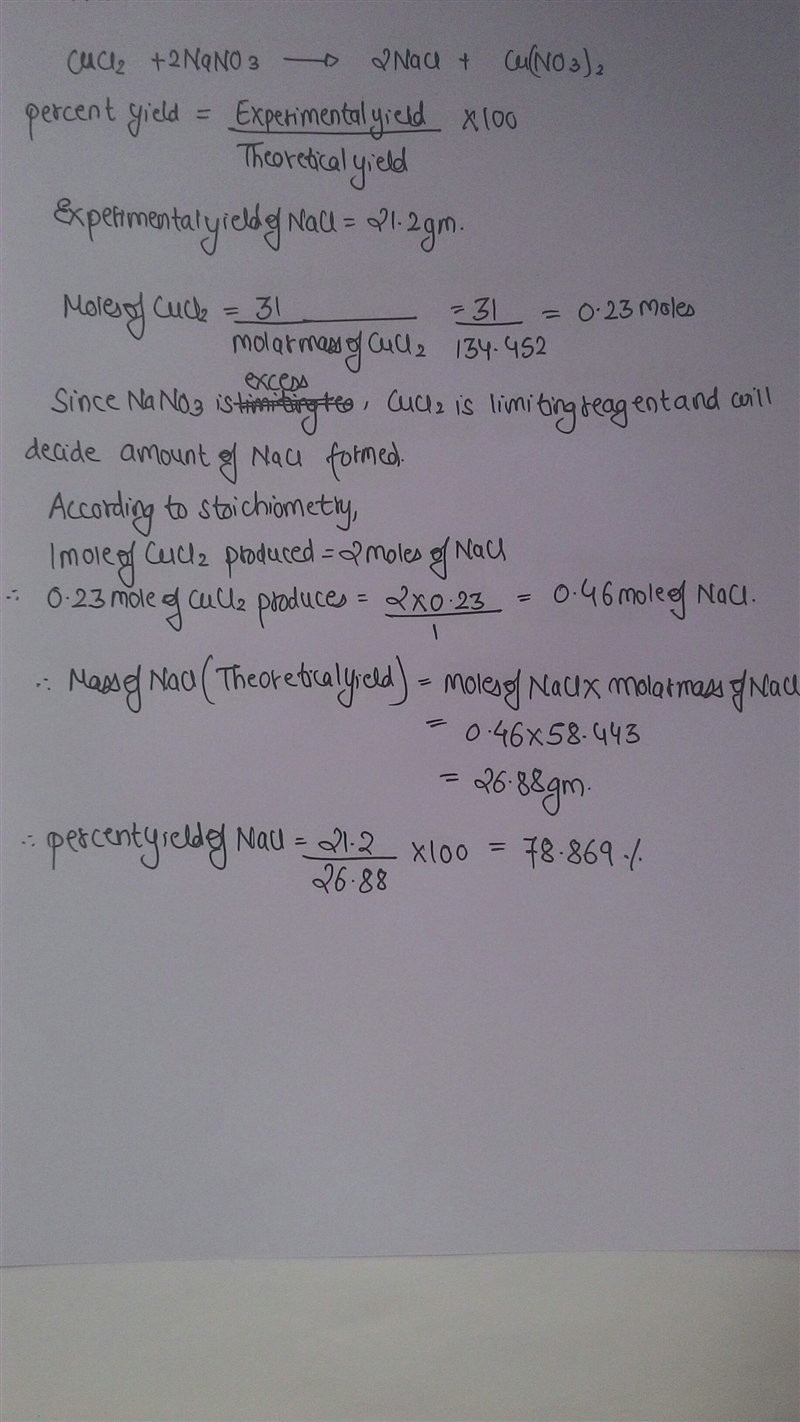 CuCl2 + 2NaNO3 → 2NaCl + Cu(NO3)2
percent yield = Experimental yield / Theoretical yield × 100
Experimental yield of NaCl = 21.2 gm.
Moles of CuCl2 = 31 / molar mass of CuCl2 = 31 / 134.452 = 0.23 moles
Since NaNO3 is limiting re excess, CuCl2 is limiting reagent and will
decide amount of NaCl formed.
According to stoichiometry,
1 mole of CuCl2 produced = 2 moles of NaCl
∴ 0.23 mole of CuCl2 produces = 2 × 0.23 / 1 = 0.46 mole of NaCl.
∴ Mass of NaCl (Theoretical yield) = moles of NaCl × molar mass of NaCl
= 0.46 × 58.443
= 26.88 gm.
∴ percent yield of NaCl = 21.2 / 26.88 × 100 = 78.869 %